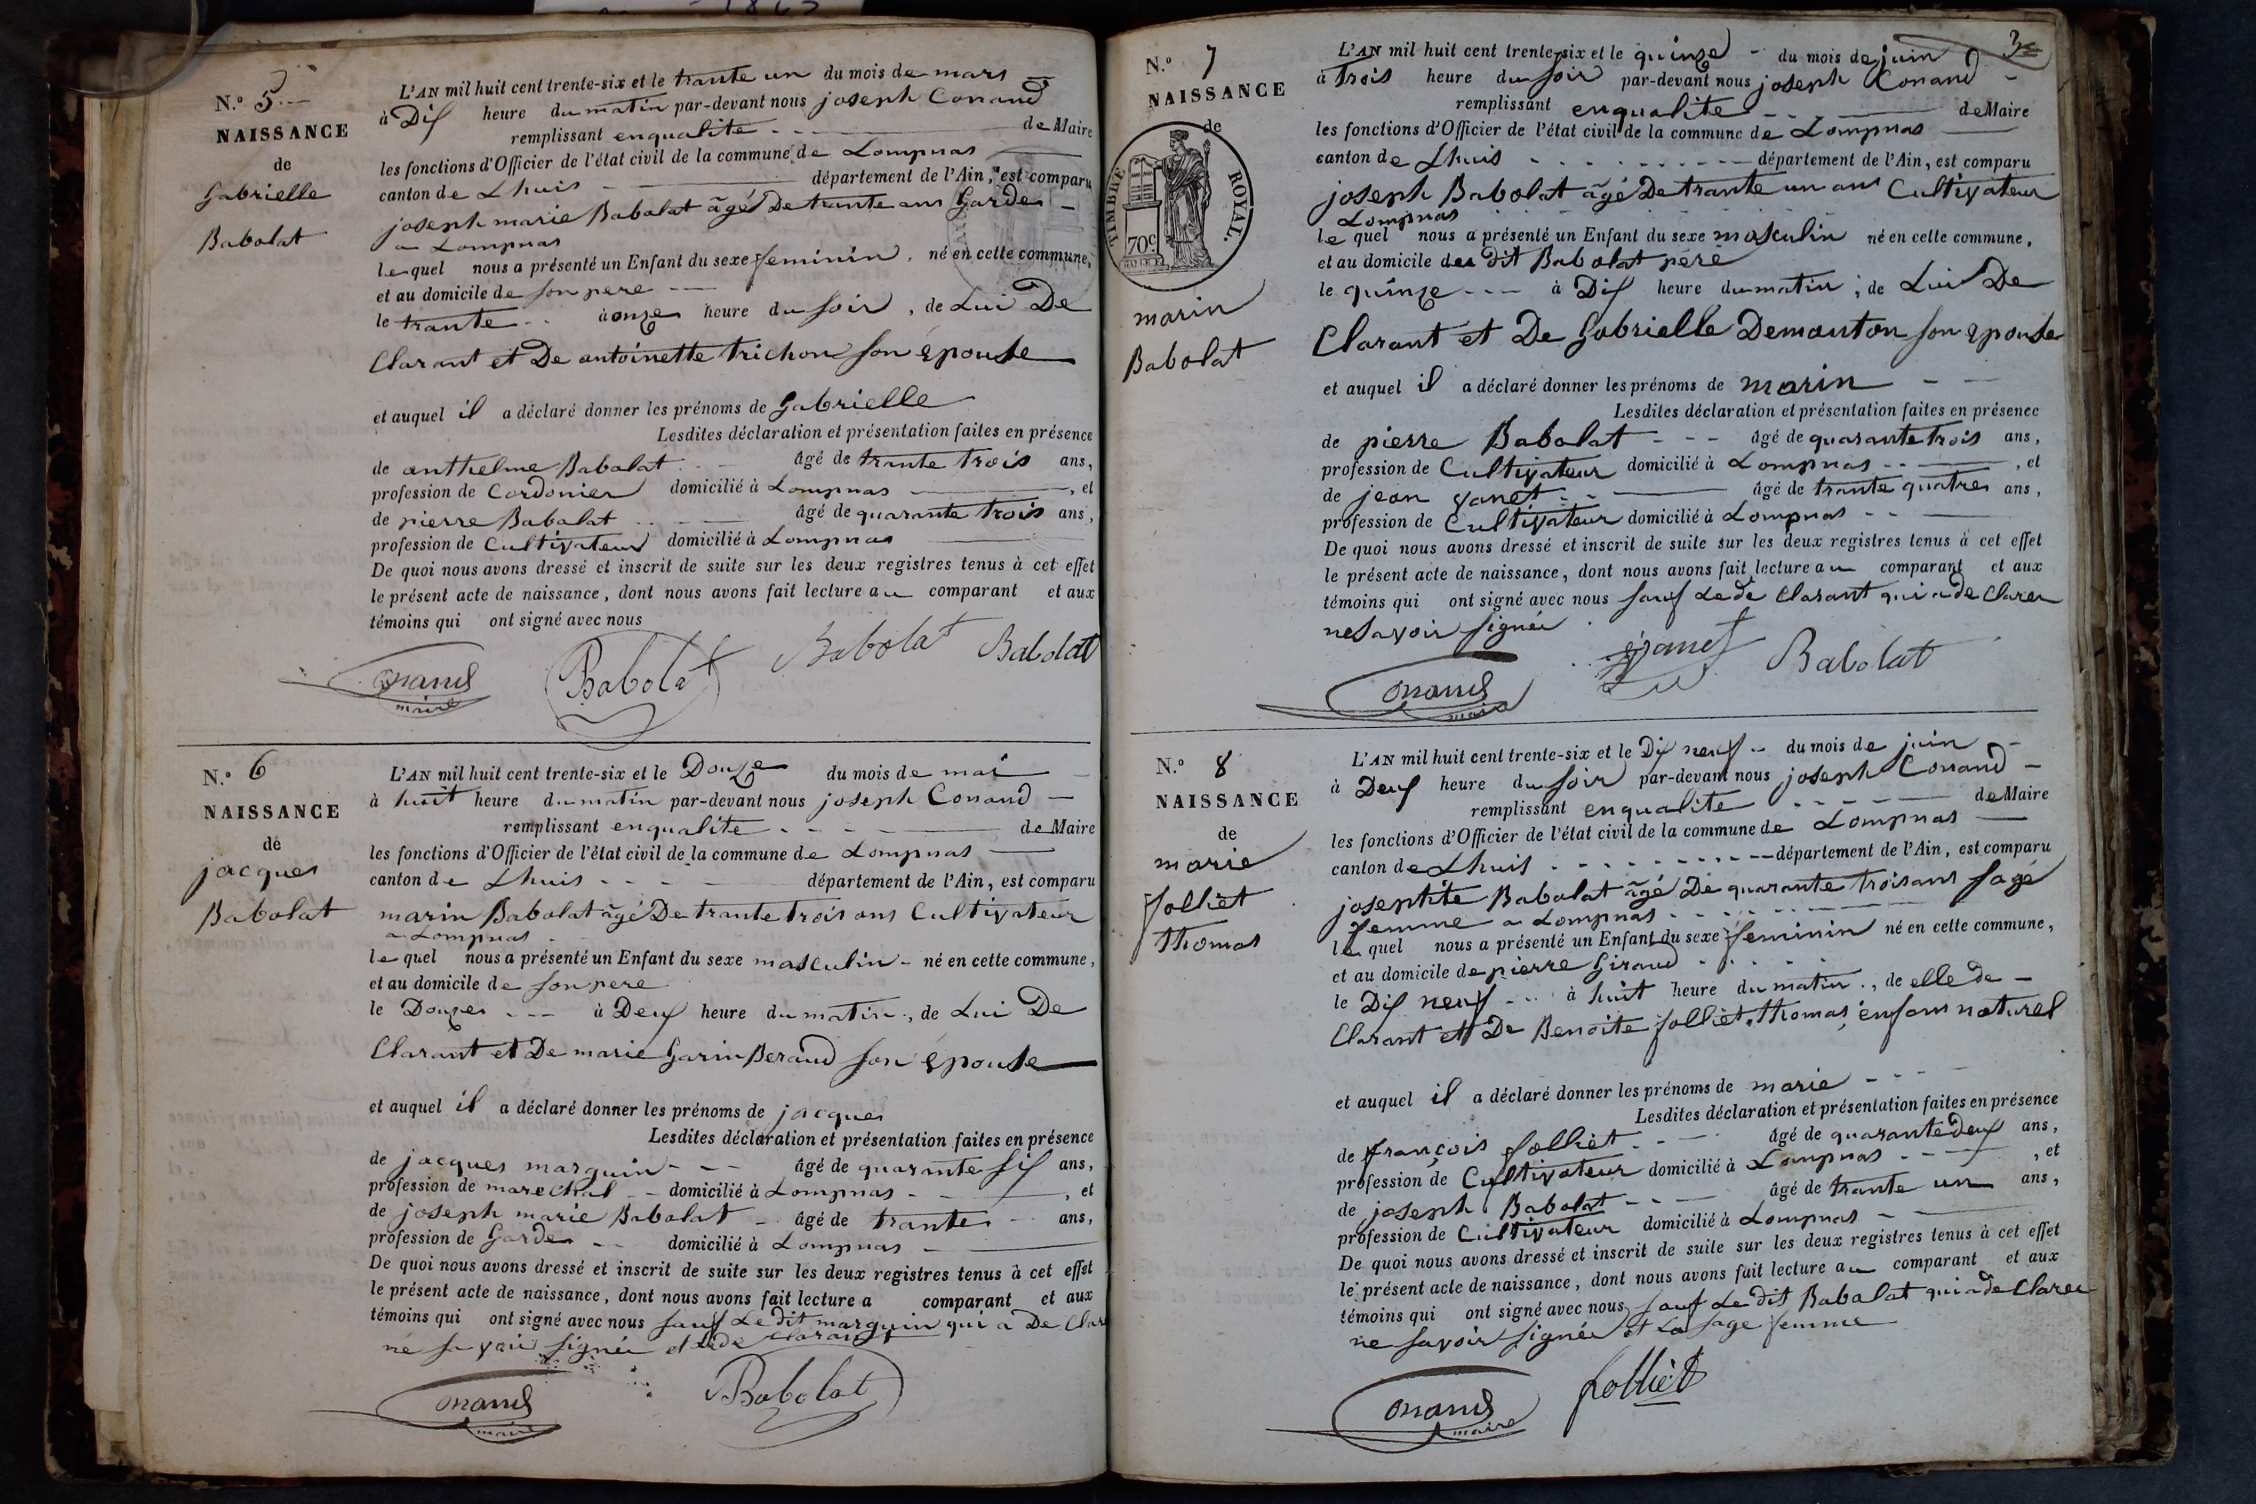 N.º 5
NAISSANCE
de
Gabrielle
Babolat
L'AN mil huit cent trente-six et le trante un du mois de mars
à Dix heure du matin par-devant nous joseph Conand
remplissant enqualite de Maire
les fonctions d'Officier de l'état civil de la commune de Lompnas
canton de Lhuis département de l'Ain, est comparu
joseph marie Babolat âgé De trante ans Garde
a Lompnas
le quel nous a présenté un Enfant du sexe feminin, né en cette commune,
et au domicile de son pere
le trante à onze heure du soir, de Lui De
Clarant et De antoinette trichon son Epouse
et auquel il a déclaré donner les prénoms de Gabrielle
Lesdites déclaration et présentation faites en présence
de anthelme Babolat âgé de trante trois ans,
profession de Cordonier domicilié à Lompnas, et
de pierre Babolat âgé de quarante trois ans,
profession de Cultivateur domicilié à Lompnas
De quoi nous avons dressé et inscrit de suite sur les deux registres tenus à cet effet
le présent acte de naissance, dont nous avons fait lecture au comparant et aux
témoins qui ont signé avec nous
Conand Babolat Babolat Babolat
maire
N.º 6
NAISSANCE
de
jacques
Babolat
L'AN mil huit cent trente-six et le Douze du mois de mai
à huit heure du matin par-devant nous joseph Conand
remplissant enqualite de Maire
les fonctions d'Officier de l'état civil de la commune de Lompnas
canton de Lhuis département de l'Ain, est comparu
marin Babolat âgé De trante trois ans Cultivateur
a Lompnas
le quel nous a présenté un Enfant du sexe masculin né en cette commune,
et au domicile de son pere
le Douze à Deux heure du matin, de Lui De
Clarant et De marie Garin Beraud son Epouse
et auquel il a déclaré donner les prénoms de jacques
Lesdites déclaration et présentation faites en présence
de jacques marguin âgé de quarante six ans,
profession de marechal domicilié à Lompnas, et
de joseph marie Babolat âgé de trante ans,
profession de Garde domicilié à Lompnas
De quoi nous avons dressé et inscrit de suite sur les deux registres tenus à cet effet
le présent acte de naissance, dont nous avons fait lecture a comparant et aux
témoins qui ont signé avec nous sauf Le dit marguin qui a De Clar
né savoir signée et Lede clarant
Conand Babolat
maire
3e
N.º 7
NAISSANCE
de
TIMBRE ROYAL.
70c
marin
Babolat
L'AN mil huit cent trente-six et le quinze du mois de juin
à Trois heure du soir par-devant nous joseph Conand
remplissant enqualite de Maire
les fonctions d'Officier de l'état civil de la commune de Lompnas
canton de Lhuis département de l'Ain, est comparu
joseph Babolat âgé De trante un ans Cultivateur
Lompnas
le quel nous a présenté un Enfant du sexe masculin né en cette commune,
et au domicile des dit Babolat père
le quinze à Dix heure du matin, de Lui De
Clarant et De Gabrielle Demonton son Epouse
et auquel il a déclaré donner les prénoms de marin
Lesdites déclaration et présentation faites en présence
de pierre Babolat âgé de quarante trois ans,
profession de Cultivateur domicilié à Lompnas, et
de jean yanet âgé de trante quatre ans,
profession de Cultivateur domicilié à Lompnas
De quoi nous avons dressé et inscrit de suite sur les deux registres tenus à cet effet
le présent acte de naissance, dont nous avons fait lecture au comparant et aux
témoins qui ont signé avec nous sauf Lede Clarant qui a de Clarer
ne Savoir signée
Conand yanet Babolat
maire
N.º 8
NAISSANCE
de
marie
folliet
thomas
L'AN mil huit cent trente-six et le Dix neuf du mois de juin
à Deux heure du soir par-devant nous joseph Conand
remplissant enqualite de Maire
les fonctions d'Officier de l'état civil de la commune de Lompnas
canton de Lhuis département de l'Ain, est comparu
josephte Babolat âgé De quarante trois ans sage
femme a Lompnas
la quel nous a présenté un Enfant du sexe feminin né en cette commune,
et au domicile de pierre Giraud
le Dix neuf à huit heure du matin, de elle de
Clarant et De Benoite folliet thomas enfans naturel
et auquel il a déclaré donner les prénoms de marie
Lesdites déclaration et présentation faites en présence
de françois folliet âgé de quarante deux ans,
profession de Cultivateur domicilié à Lompnas, et
de joseph Babolat âgé de trante un ans,
profession de Cultivateur domicilié à Lompnas
De quoi nous avons dressé et inscrit de suite sur les deux registres tenus à cet effet
le présent acte de naissance, dont nous avons fait lecture au comparant et aux
témoins qui ont signé avec nous sauf Le dit Babolat qui a de Clarer
ne savoir signée et La sage femme
Conand folliet
maire